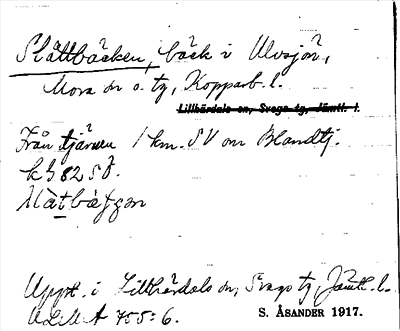 Slåttbäcken, bäck i Ulvsjön,
Mora sn o. tg, Kopparb. l.
Lillhärdals sn, Svegs tg, Jämtl. l.
Från tjärnen 1 km. SV om Blandtj.
k G 82 S Ö.
Uppt. i Lillhärdals sn, Svegs tg, Jämtl. l.
ULMA 755:6. S. ÅSANDER 1917.